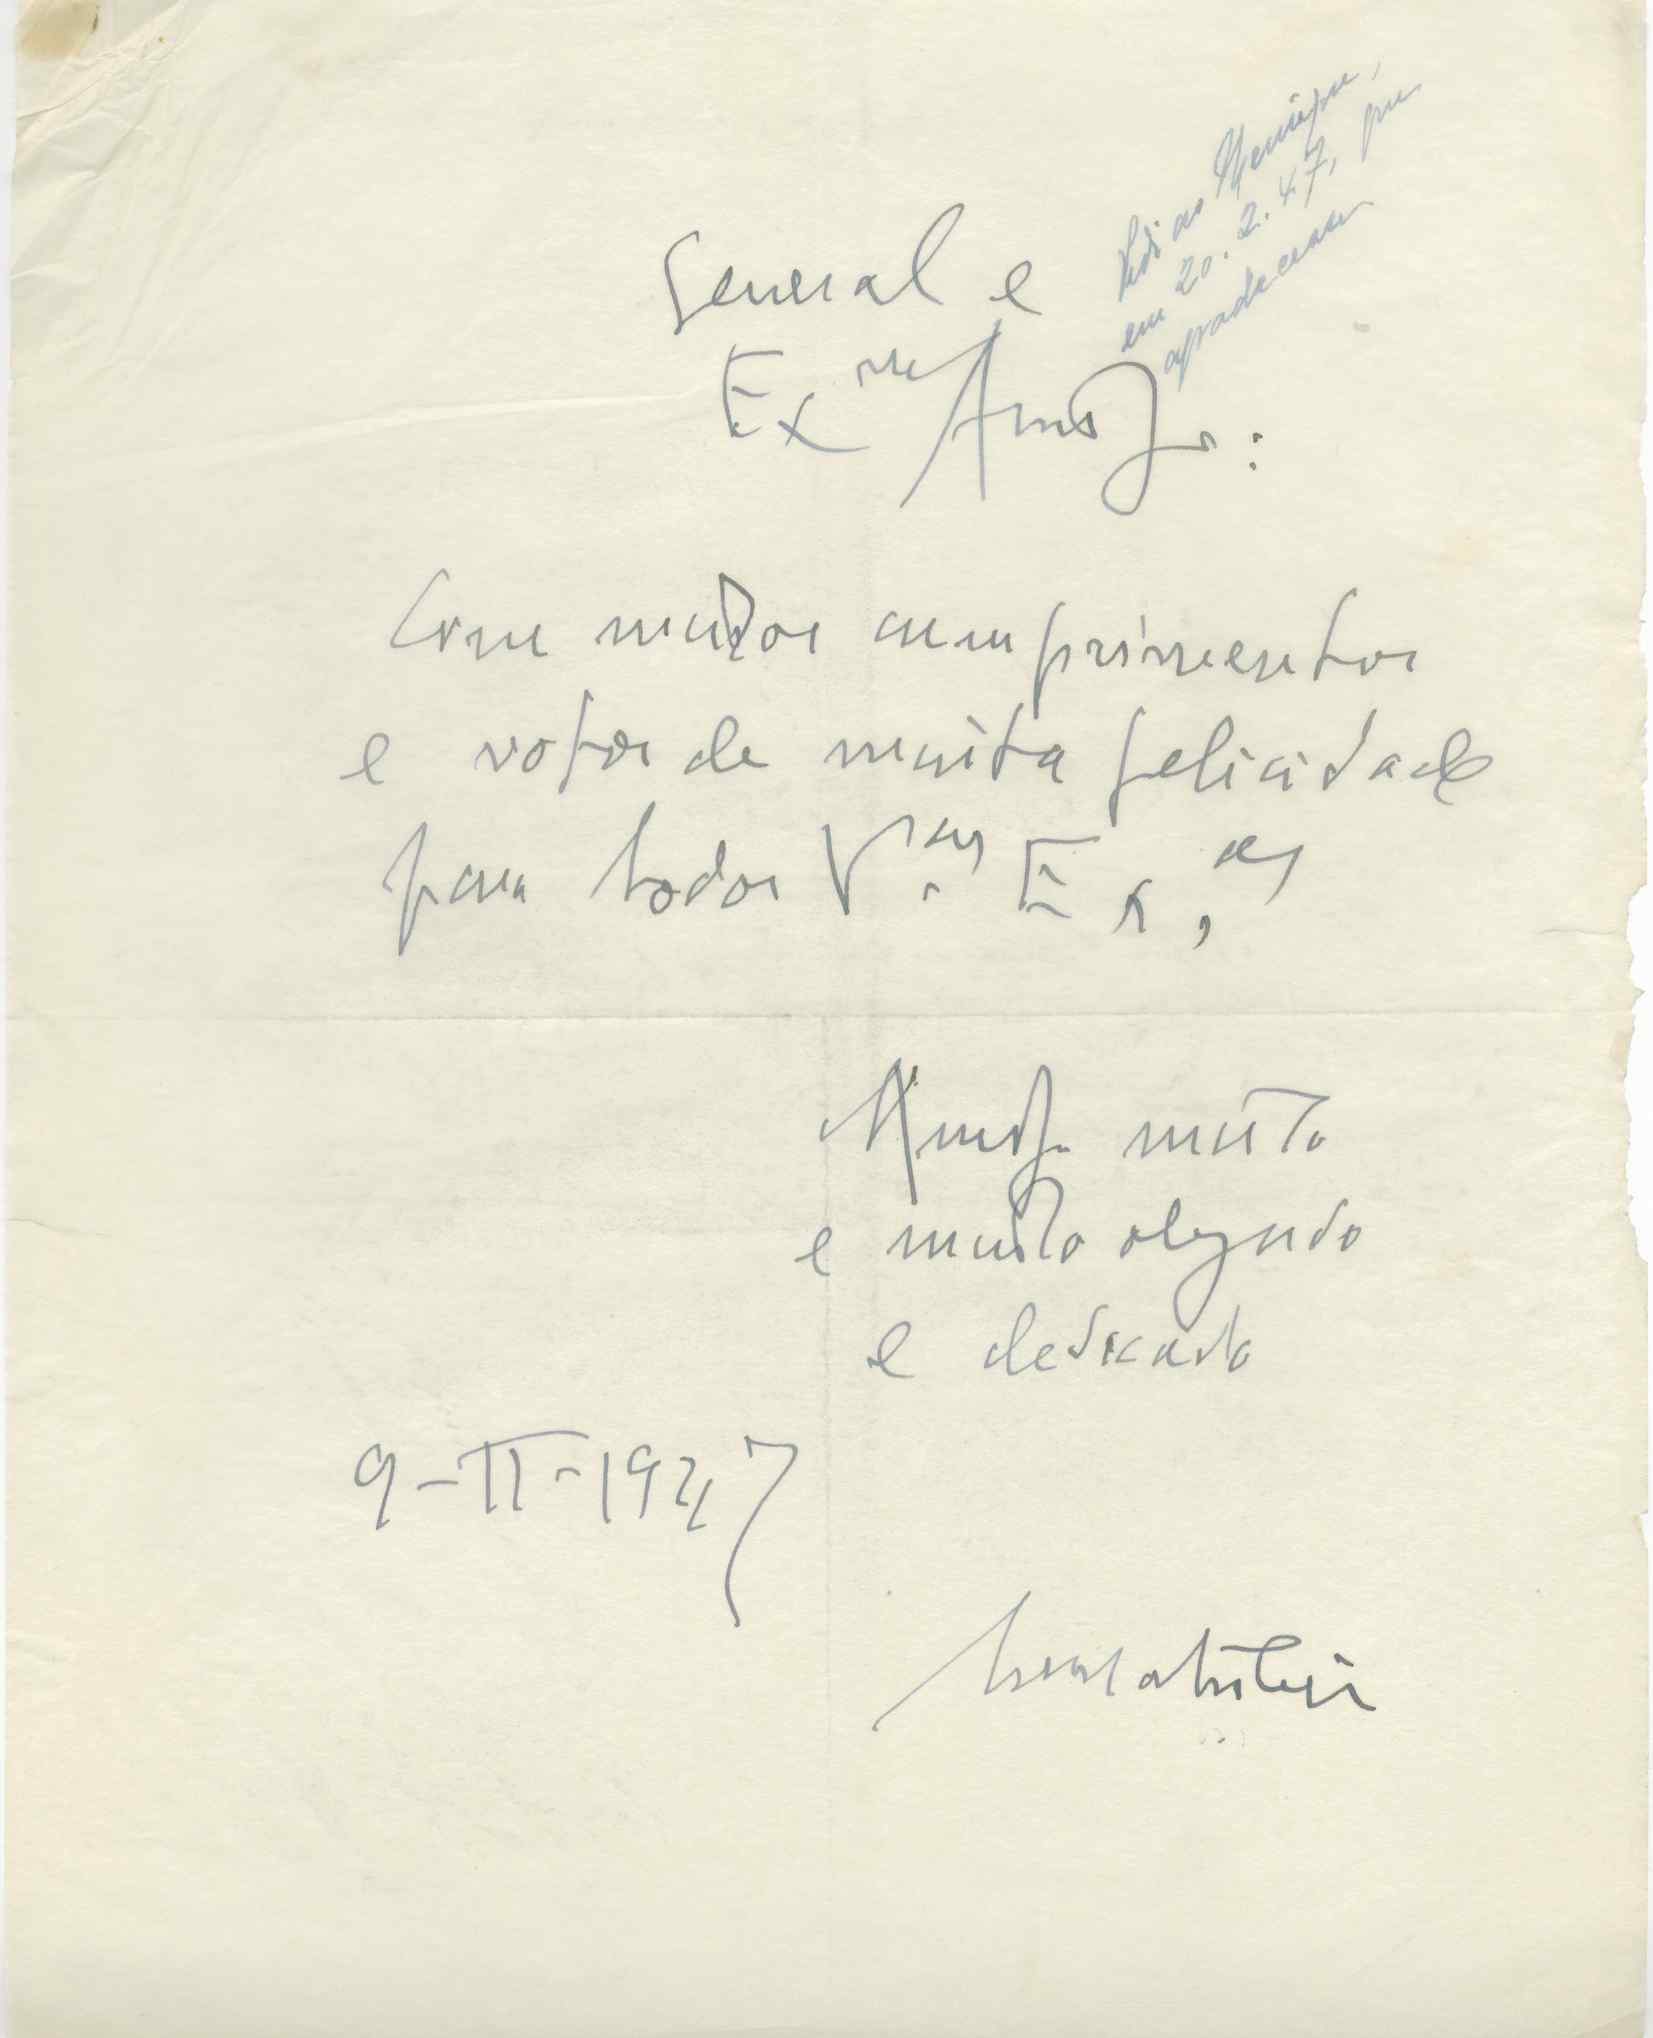 Pedi ao Henrique,
em 20.2.47, pra
agradecesse
General e
Ex.mo Amigo:
Com muitos cumprimentos
e votos de muita felicidade
para todos V.as Ex.as
Amigo muito
e muito obrigado
e dedicado
9-II-1947